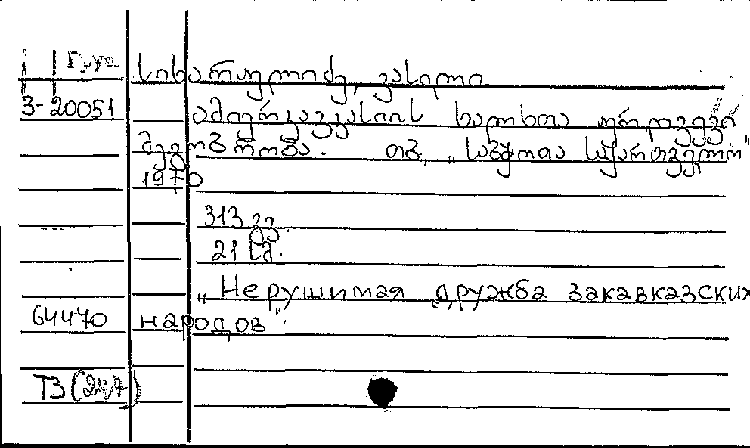 Груз სიხარულიძე, ვასილი
3-20051 ამიერკავკასიის ხალხთა ურღვევი
მეგობრობა. თბ., „საბჭოთა საქართველო“
1970
313 გვ.
21 სმ.
„Нерушимая дружба закавказских
64470 народов".
ТЗ (247)